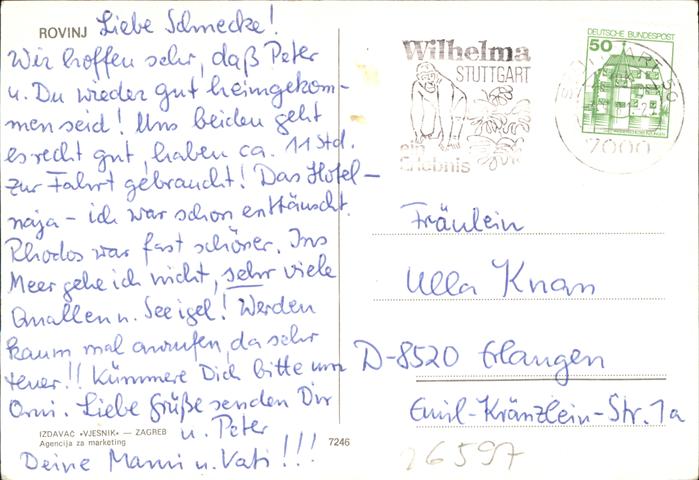 ROVINJ Liebe Schmecke!
Wir hoffen sehr, daß Peter
u. Du wieder gut heimgekom-
men seid! Uns beiden geht
es recht gut, haben ca. 11 Std.
zur Fahrt gebraucht! Das Hotel -
naja - ich war schon enttäuscht.
Rhodos war fast schöner. Ins
Meer gehe ich nicht, sehr viele
Quallen u. Seeigel! Werden
kaum mal anrufen, da sehr
teuer!! Kümmere Dich bitte um
Omi. Liebe Grüße senden Dir
u. Peter
Deine Mami u. Vati!!!
IZDAVAČ »VJESNIK« — ZAGREB
Agencija za marketing
7246
Wilhelma
STUTTGART
ein
Erlebnis
DEUTSCHE BUNDESPOST
50
7000
Fräulein
Ulla Knan
D-8520 Erlangen
Emil-Kränzlein-Str. 1a
26597